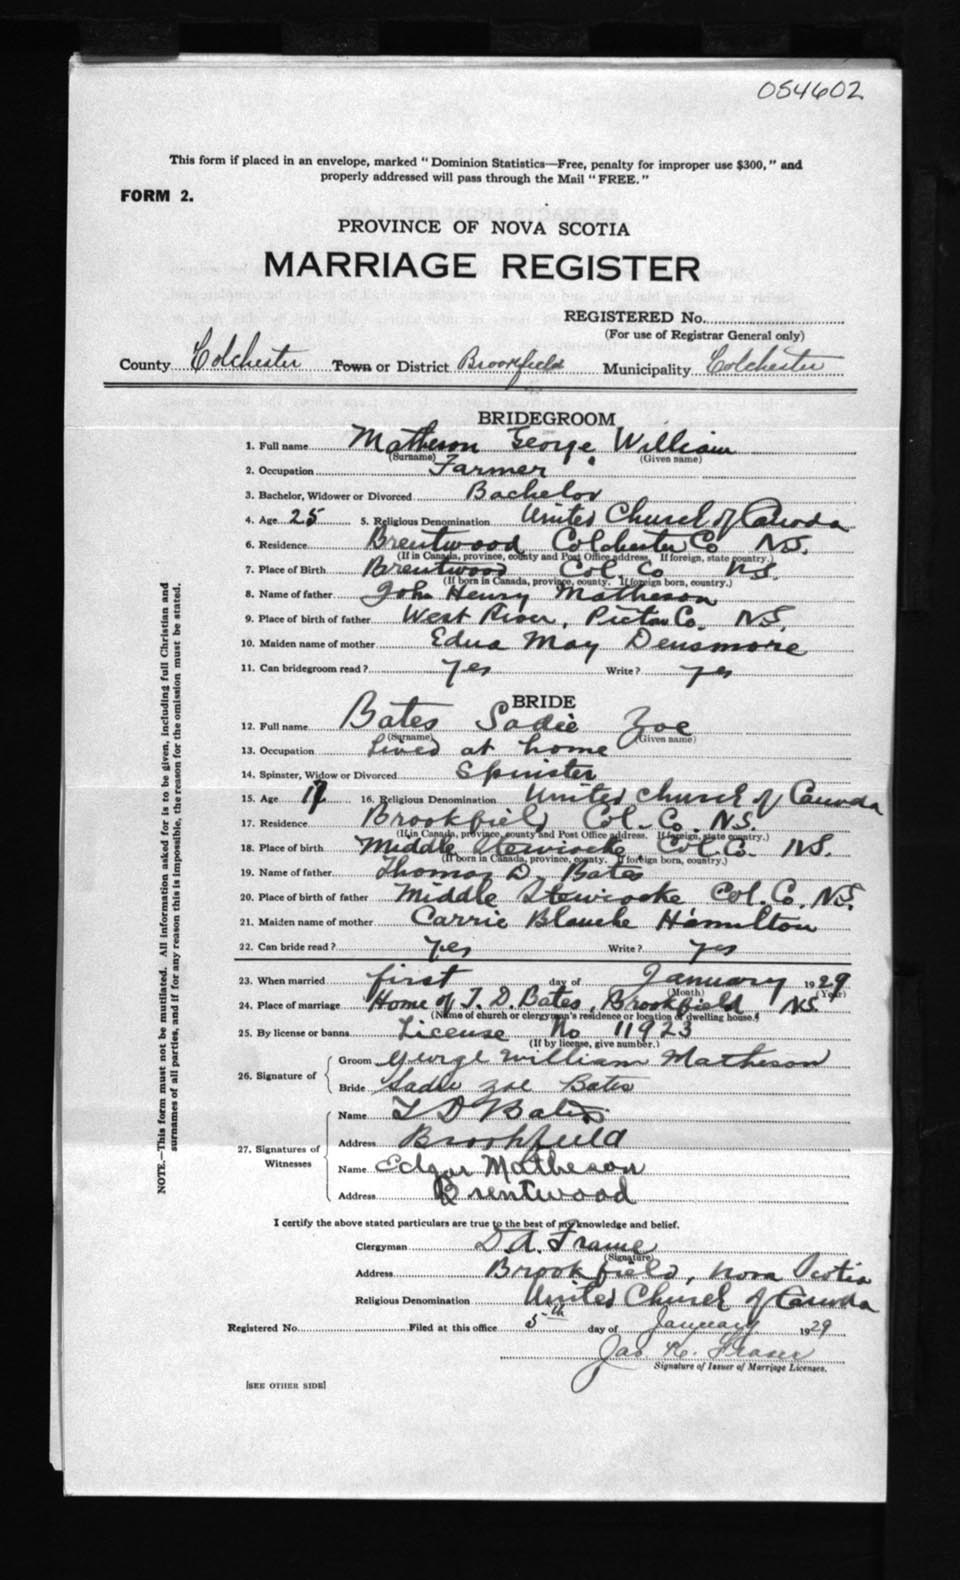 054602
This form if placed in an envelope, marked "Dominion Statistics—Free, penalty for improper use $300," and
properly addressed will pass through the Mail "FREE."
FORM 2.
PROVINCE OF NOVA SCOTIA
MARRIAGE REGISTER
REGISTERED No.
(For use of Registrar General only)
County Colchester Town or District Brookfield Municipality Colchester
BRIDEGROOM
1. Full name Matheson George William
(Surname) (Given name)
2. Occupation Farmer
3. Bachelor, Widower or Divorced Bachelor
4. Age 25 5. Religious Denomination United Church of Canada
6. Residence Brentwood Colchester Co N.S.
(If in Canada, province, county and Post Office address. If foreign, state country.)
7. Place of Birth Brentwood Col. Co N.S.
(If born in Canada, province, county. If foreign born, country.)
8. Name of father John Henry Matheson
9. Place of birth of father West River, Pictou Co. N.S.
10. Maiden name of mother Edna May Densmore
11. Can bridegroom read? Yes Write? yes
BRIDE
12. Full name Bates Sadie Zoe
(Surname) (Given name)
13. Occupation Lived at home
14. Spinster, Widow or Divorced Spinster
15. Age 16. Religious Denomination United Church of Canada
17. Residence Brookfield Col. Co. N.S.
(If in Canada, province, county and Post Office address. If foreign, state country.)
18. Place of birth Middle Stewiacke Col. Co. N.S.
(If born in Canada, province, county. If foreign born, country.)
19. Name of father Thomas D. Bates
20. Place of birth of father Middle Stewiacke Col. Co. N.S.
21. Maiden name of mother Carrie Blanche Hamilton
22. Can bride read? Yes Write? yes
23. When married first day of January 1929
(Month) (Year)
24. Place of marriage Home of T. D. Bates, Brookfield N.S.
(Name of church or clergyman's residence or location of dwelling house.)
25. By license or banns License No 11923
(If by license, give number.)
26. Signature of
Groom George William Matheson
Bride Sadie Zoe Bates
27. Signatures of Witnesses
Name T D Bates
Address Brookfield
Name Edgar Matheson
Address Brentwood
I certify the above stated particulars are true to the best of my knowledge and belief.
Clergyman D. A. Frame
(Signature)
Address Brookfield, Nova Scotia
Religious Denomination United Church of Canada
Registered No. Filed at this office 5th day of January 1929
Jas. K. Fraser
Signature of Issuer of Marriage Licenses.
[SEE OTHER SIDE]
NOTE.—This form must not be mutilated. All information asked for is to be given, including full Christian and
surnames of all parties, and if for any reason this is impossible, the reason for the omission must be stated.